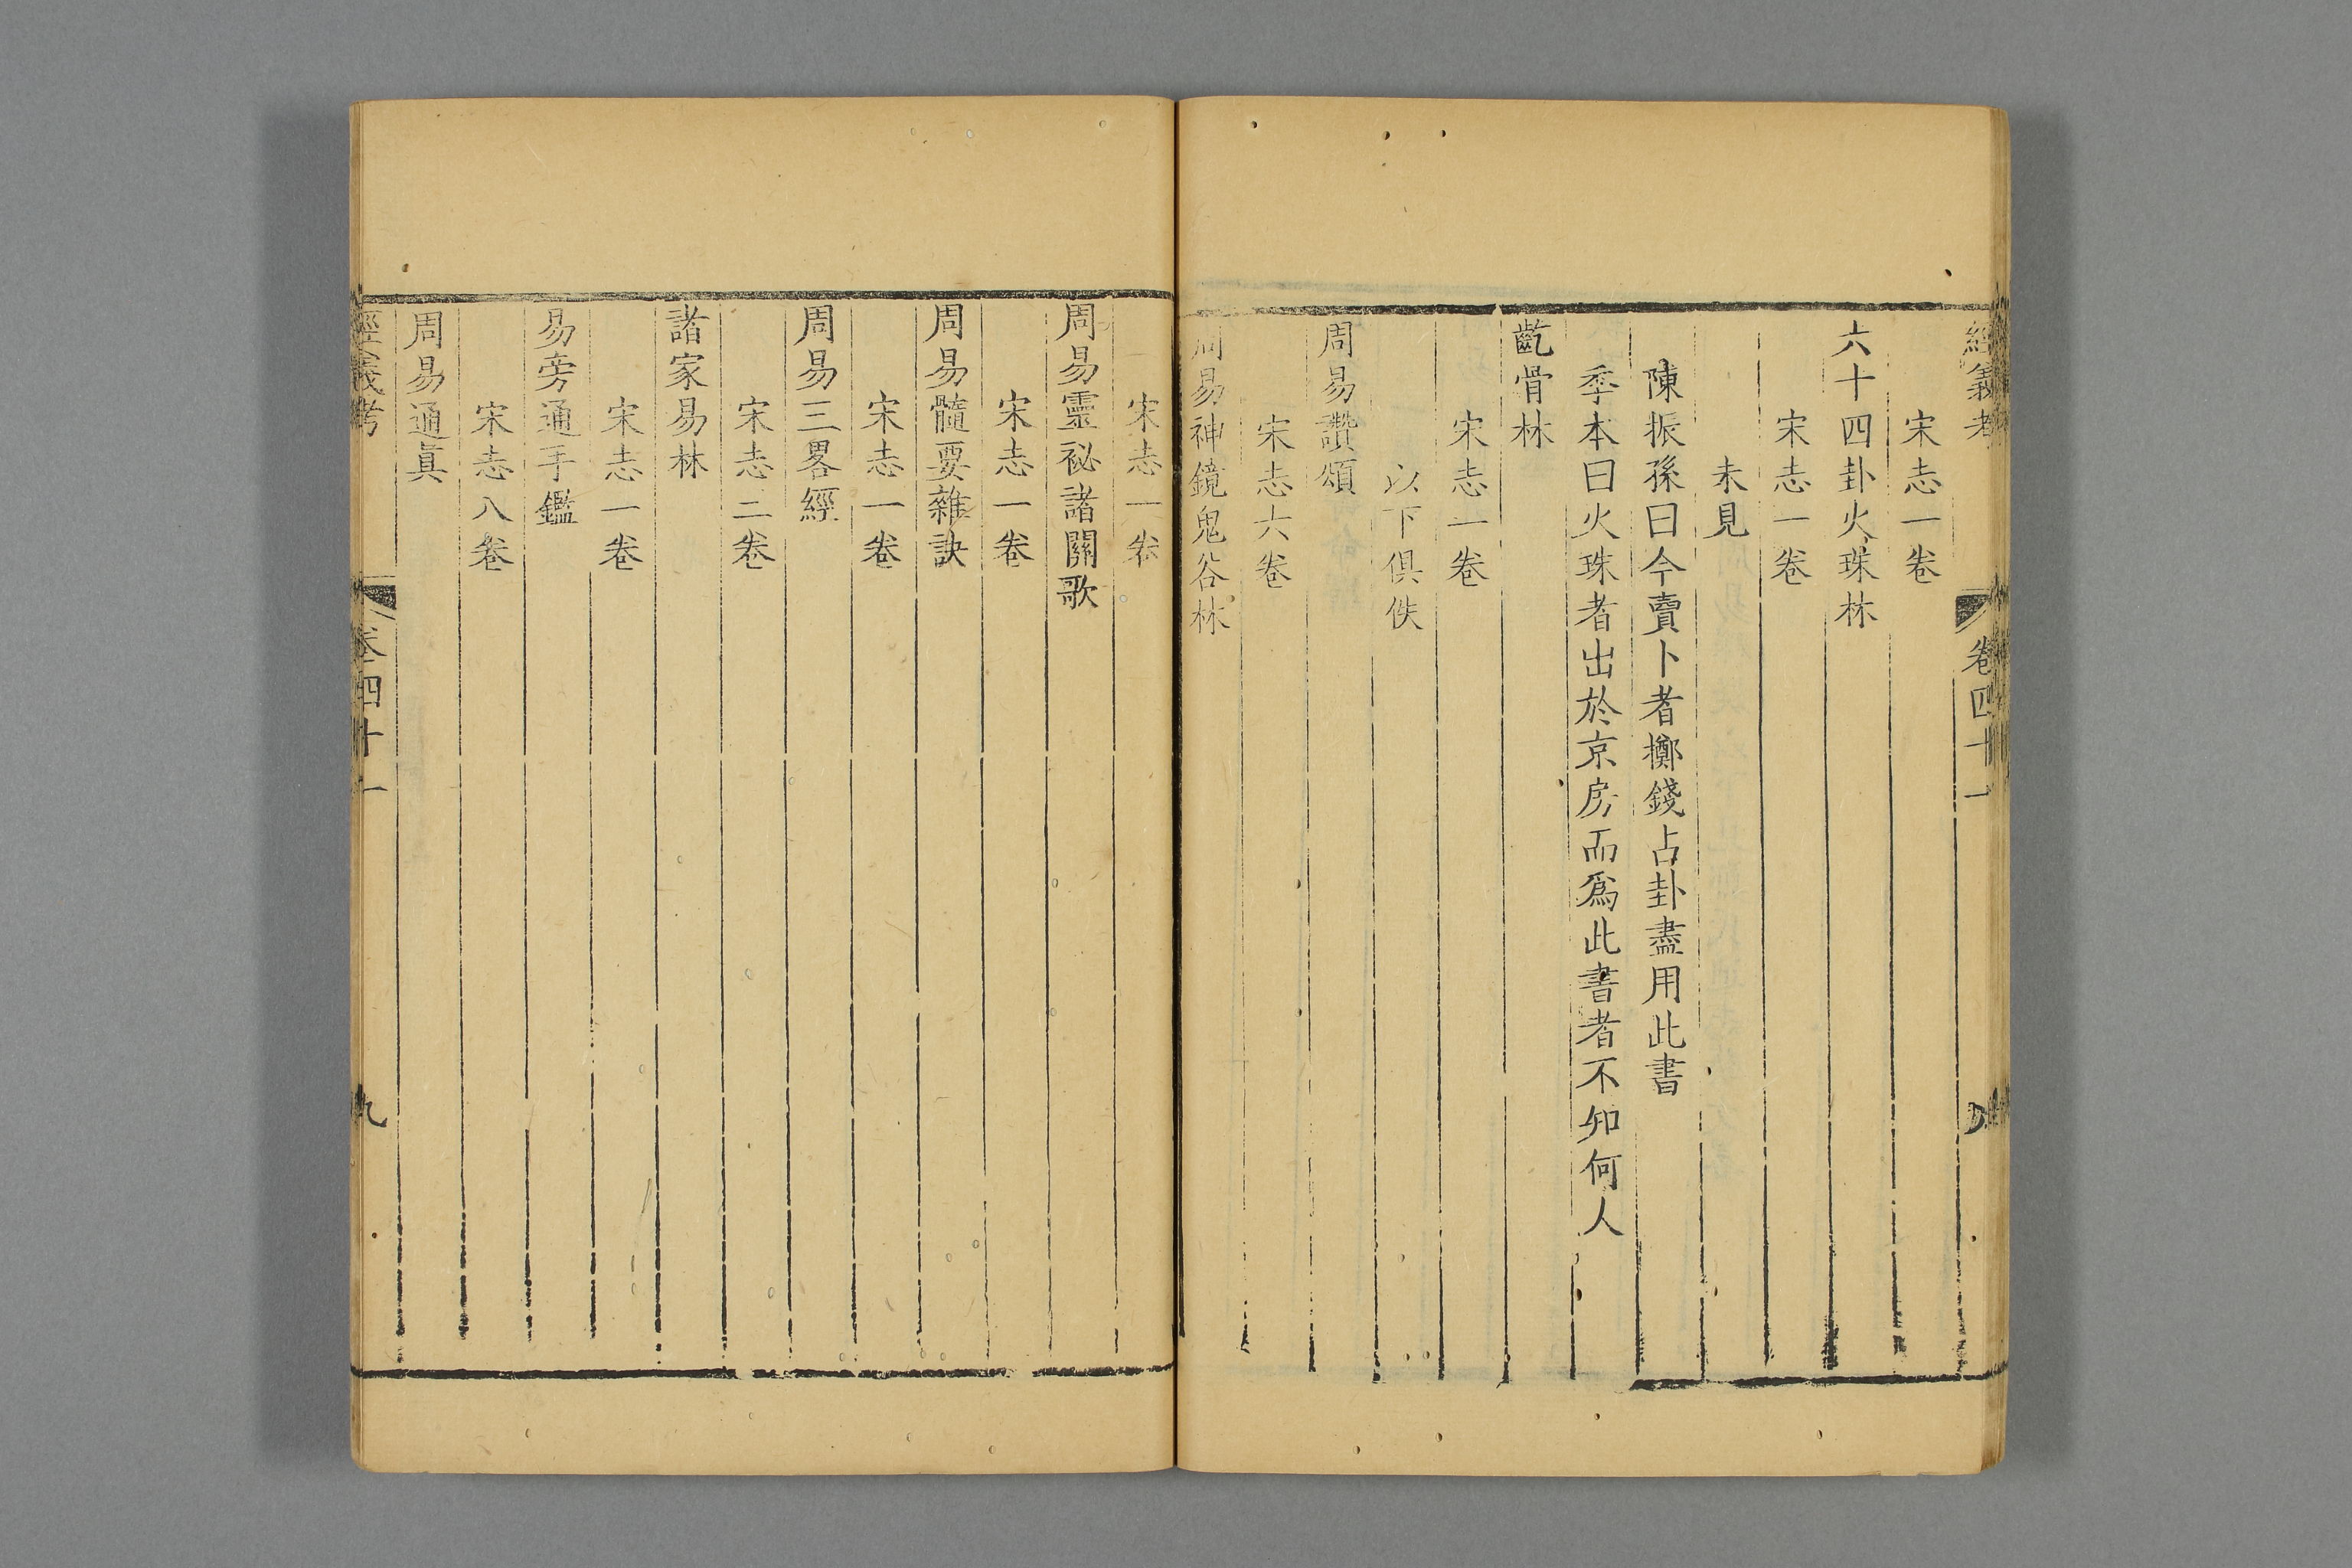 經義考
卷四十一
宋志一卷
六十四卦火珠林
宋志一卷
未見
陳振孫曰今賣卜者擲錢占卦盡用此書
季本曰火珠者出於京房而爲此書者不知何人
齕骨林
宋志一卷
以下俱佚
周易讚頌
宋志六卷
周易神鏡鬼谷林
宋志一卷
周易靈祕諸關歌
宋志一卷
周易髓要雜訣
宋志一卷
周易三畧經
宋志三卷
諸家易林
宋志一卷
易旁通手鑑
宋志八卷
周易通眞
經義考
卷四十一
九